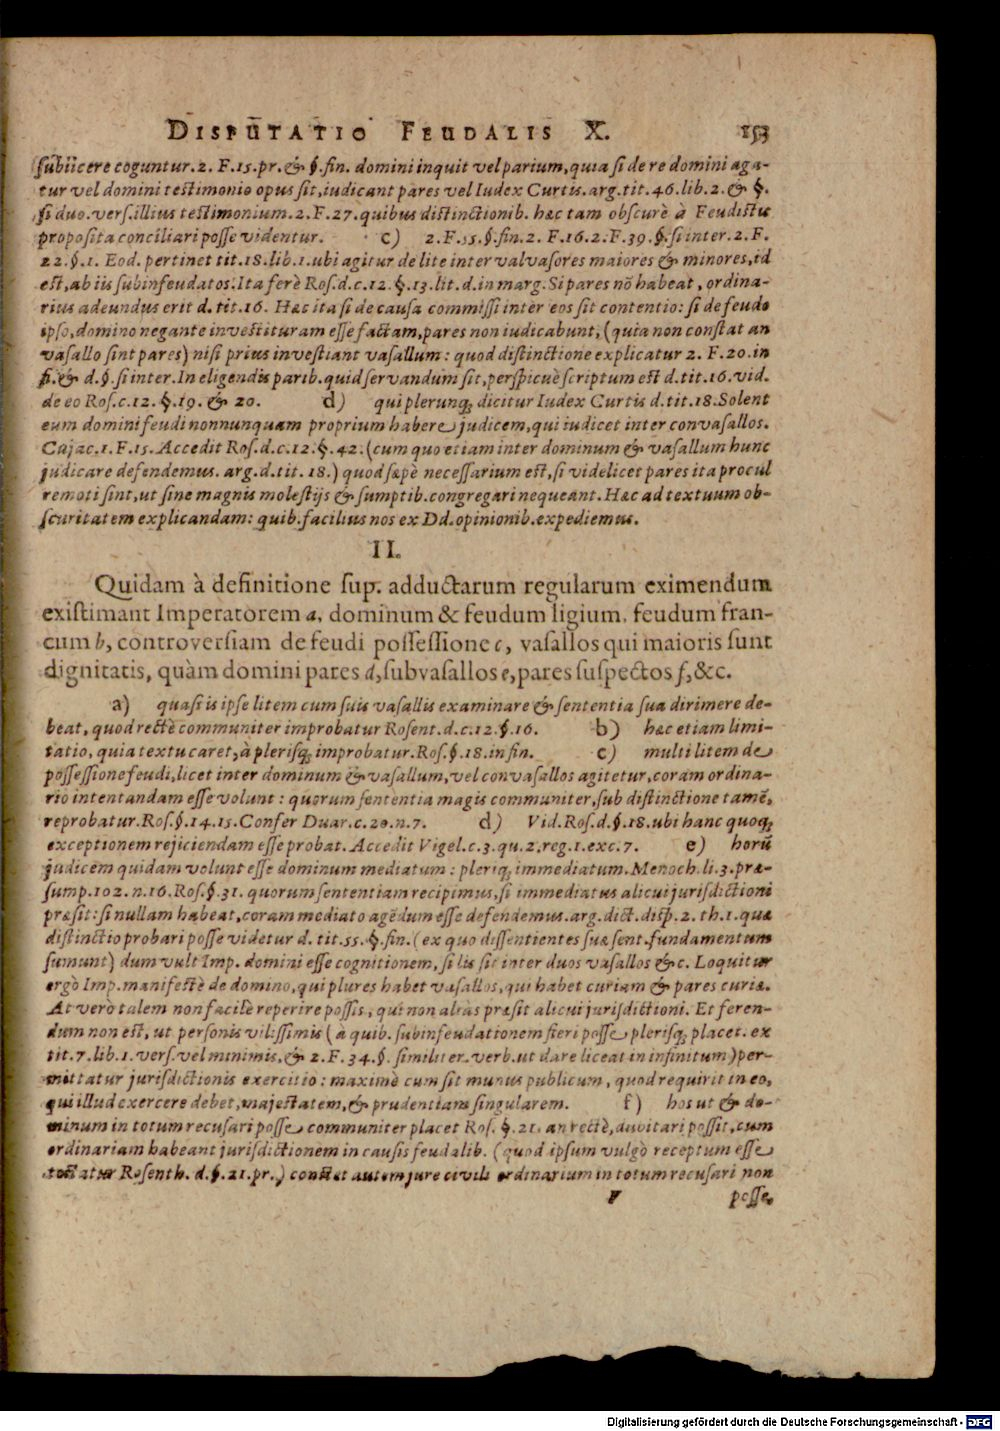 DISPUTATIO FEUDALIS X. 153
subiicere coguntur. 2. F. 15. pr. & §. fin. domini inquit vel parium, quia si de re domini aga-
tur vel domini testimonio opus sit, iudicant pares vel Iudex Curtis. arg. tit. 46. lib. 2. & §.
si duo. vers. illius testimonium. 2. F. 27. quibus distinctionib. hæc tam obscurè à Feudistis
proposita conciliari posse videntur. c) 2. F. 55. §. fin. 2. F. 16. 2. F. 39. §. si inter. 2. F.
22. §. 1. Eod. pertinet tit. 18. lib. 1. ubi agitur de lite inter valvasores maiores & minores, id
est, ab iis subinfeudatos. Ita ferè Ros. d. c. 12. §. 13. lit. d. in marg. Si pares nō habeat, ordina-
rius adeundus erit d. tit. 16. Hæc ita si de causa commissi inter eos sit contentio: si de feudo
ipso, domino negante investituram esse factam, pares non iudicabunt, (quia non constat an
vasallo sint pares) nisi prius investiant vasallum: quod distinctione explicatur 2. F. 20. in
f. & d. §. si inter. In eligendis parib. quid servandum sit, perspicuè scriptum est d. tit. 16. vid.
de eo Ros. c. 12. §. 19. & 20. d) qui plerunq; dicitur Iudex Curtis d. tit. 18. Solent
eum domini feudi nonnunquam proprium habere judicem, qui iudicet inter convasallos.
Cujac. 1. F. 15. Accedit Ros. d. c. 12. §. 42. (cum quo etiam inter dominum & vasallum hunc
judicare defendemus. arg. d. tit. 18.) quod sæpè necessarium est, si videlicet pares ita procul
remoti sint, ut sine magnis molestijs & sumptib. congregari nequeant. Hæc ad textuum ob-
scuritatem explicandam: quib. facilius nos ex Dd. opinionib. expediemus.
II.
Quidam à definitione sup. adductarum regularum eximendum
existimant Imperatorem a, dominum & feudum ligium, feudum fran-
cum b, controversiam de feudi possessione c, vasallos qui maioris sunt
dignitatis, quàm domini pares d, subvasallos e, pares suspectos f, &c.
a) quasi is ipse litem cum suis vasallis examinare & sententia sua dirimere de-
beat, quod rectè communiter improbatur Rosent. d. c. 12. §. 16. b) hæc etiam limi-
tatio, quia textu caret, à plerisq; improbatur. Ros. §. 18. in fin. c) multi litem de
possessione feudi, licet inter dominum & vasallum, vel convasallos agitetur, coram ordina-
rio intentandam esse volunt: quorum sententia magis communiter, sub distinctione tamē,
reprobatur. Ros. §. 14. 15. Confer Duar. c. 20. n. 7. d) Vid. Ros. d. §. 18. ubi hanc quoq;
exceptionem rejiciendam esse probat. Accedit Vigel. c. 3. qu. 2. reg. 1. exc. 7. e) horū
judicem quidam volunt esse dominum mediatum: pleriq; immediatum. Menoch. li. 3. præ-
sump. 102. n. 16. Ros. §. 31. quorum sententiam recipimus, si immediatus alicui jurisdictioni
præsit: si nullam habeat, coram mediato agēdum esse defendemus. arg. dict. disp. 2. th. 1. quæ
distinctio probari posse videtur d. tit. 55. §. fin. (ex quo dissentientes suæ sent. fundamentum
sumunt) dum vult Imp. domini esse cognitionem, si lis sit inter duos vasallos &c. Loquitur
ergò Imp. manifestè de domino, qui plures habet vasallos, qui habet curiam & pares curiæ.
At verò talem non facilè reperire possis, qui non aliàs præsit alicui jurisdictioni. Et feren-
dum non est, ut personis vilissimis (à quib. subinfeudationem fieri posse plerisq; placet. ex
tit. 7. lib. 1. vers. vel minimis, & 2. F. 34. §. similiter. verb. ut dare liceat in infinitum) per-
mittatur jurisdictionis exercitio: maximè cum sit munus publicum, quod requirit in eo,
qui illud exercere debet, majestatem, & prudentiam singularem. f) hos ut & do-
minum in totum recusari posse communiter placet Ros. §. 21. an rectè, duvitari possit, cum
ordinariam habeant jurisdictionem in causis feudalib. (quod ipsum vulgò receptum esse
testatur Rosenth. d. §. 21. pr.) constet autem jure civili ordinarium in totum recusari non
posse.
Digitalisierung gefördert durch die Deutsche Forschungsgemeinschaft - DFG